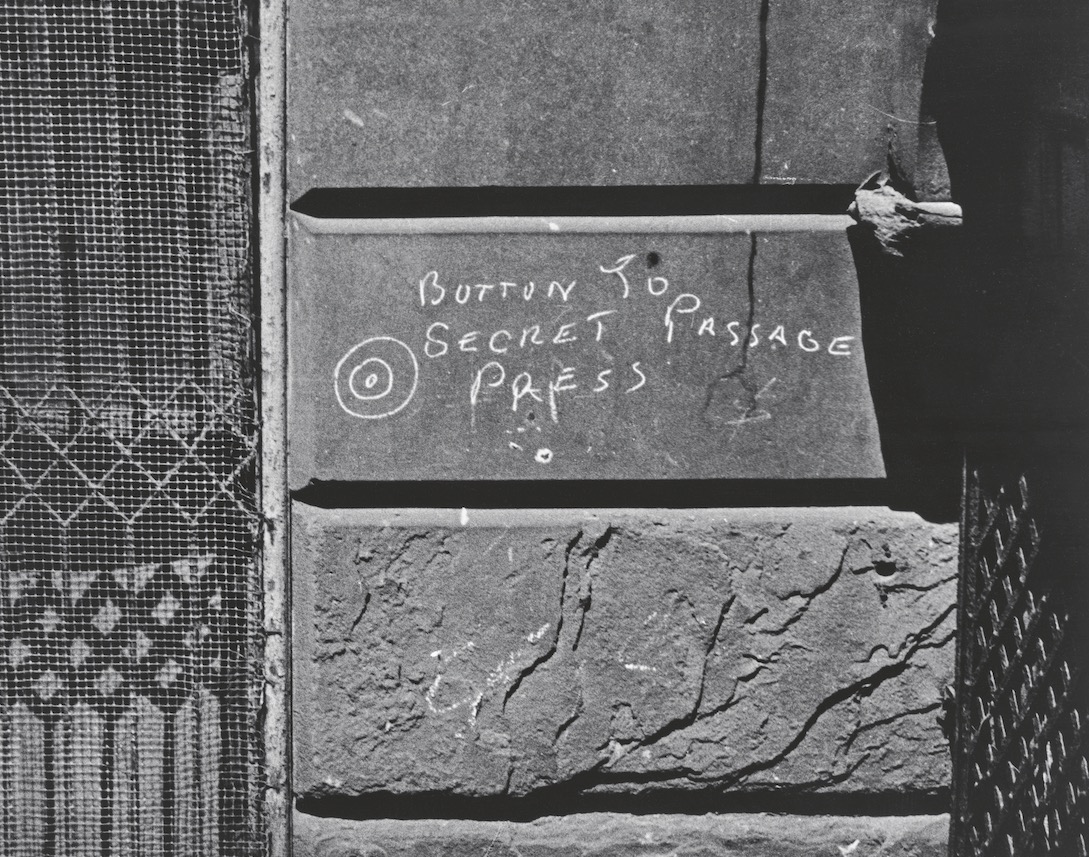 BUTTON TO
SECRET PASSAGE
PRESS